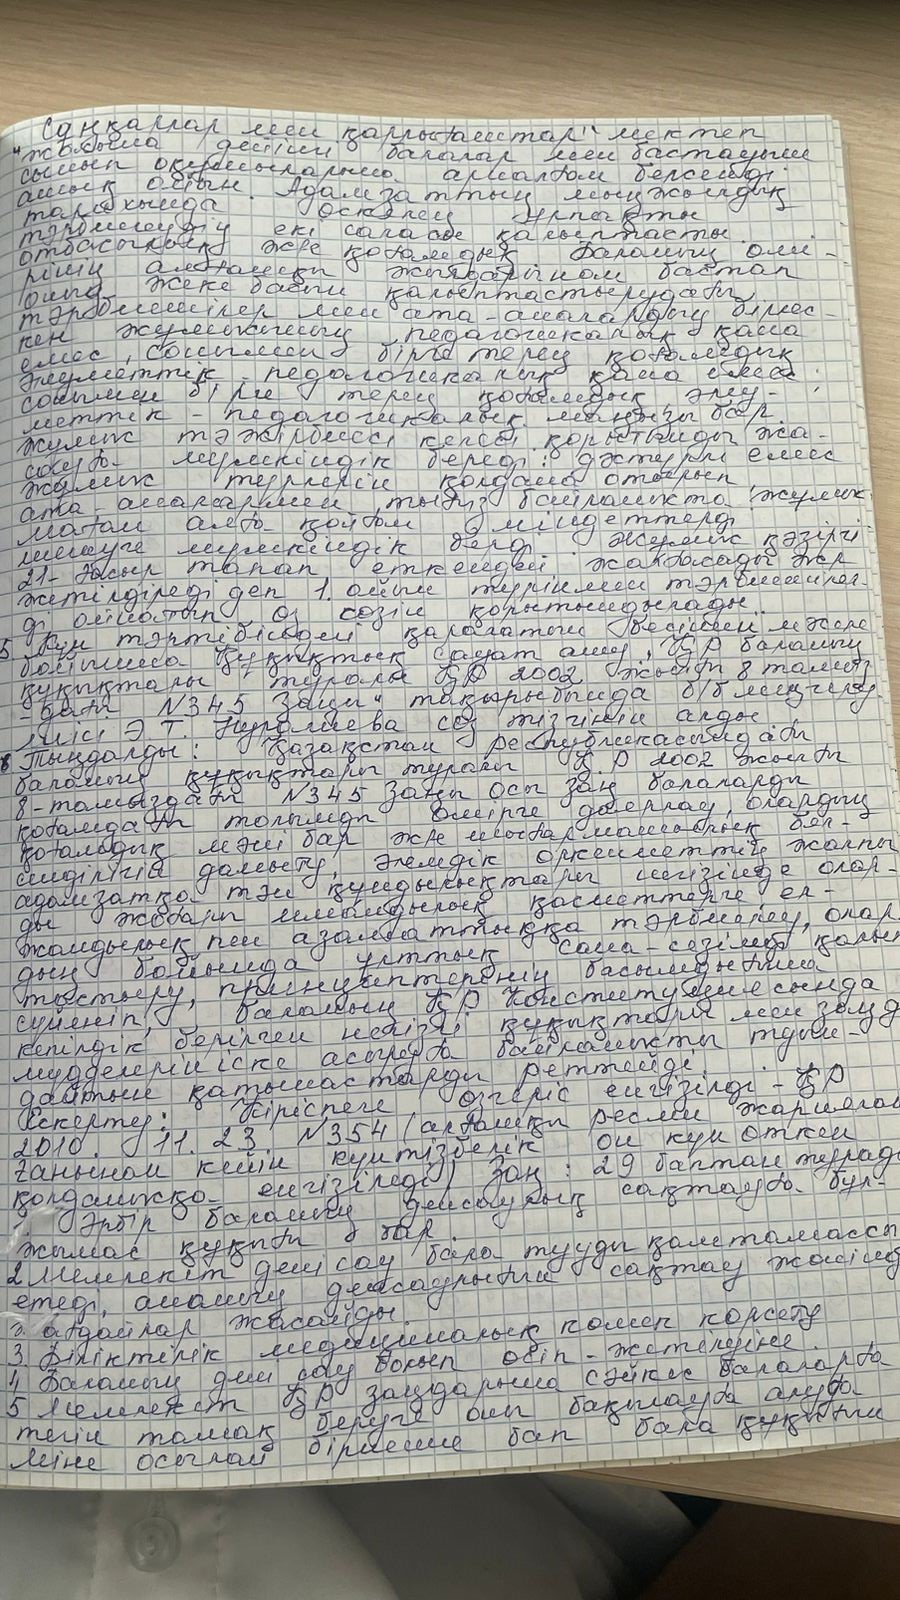 "Сұңқарлар мен қарлығаштар" мектеп
жасына дейінгі балалар мен бастауыш
сынып оқушыларына арналған белсенді
ашық ойын. Адамзаттың мыңжылдық
тарихында өскелең ұрпақты
тәрбиелеудің екі саласы қалыптасты
отбасылық және қоғамдық. Баланың өмі-
рінің алғашқы жылдарынан бастап
оның жеке басын қалыптастырудағы
тәрбиешілер мен ата-аналардың бірлес-
кен жұмысының педагогикалық қана
емес, сонымен бірге терең қоғамдық
әлуметтік - педагогикалық қана емес
сонымен бірге терең қоғамдық әлеу-
меттік - педагогикалық маңызы бар.
жұмыс тәжірбиесі келесі қорытынды жа-
сауға мүмкіндік береді: дәстүрлі емес
жұмыс түрлерін қолдана отырып
ата-аналармен тығыз байланыста жұмыс
маған алға қойған міндеттерді
шешуге мүмкіндік берді. Жұмыс қәзіргі
21-ғасыр талап еткендей жалғасады жәе
жетілдіреді деп 1. ойын түрінмен тәрбиешілер-
ді ойнатып өз сөзін қорытындылады.
5. Күн тәртібіндегі қаралатын бесінші мәселе
бойынша Құқықтық сауат ашу, ҚР баланың
құқықтары туралы ҚР 2002 жылғы 8 тамыз
-дағы N345 Заңы" тақырыбында б/б меңгеру
шісі Э.Т. Нұралиева сөз тізгінін алды.
Тыңдалды: Қазақстан Республикасындағы
баланың құқықтары туралы ҚР 2002 жылғы
8-тамыздағы N345 Заңы осы заң балаларды
қоғамдағы толымды өмірге даярлау, олардың
қоғамдық мәні бар жәе шығармашылық бел-
сінділігін дамыту, әлемдік өркениеттің жалпы
адамзатқа тән құндылықтары негізінде олар-
ды жоғары имандылық қасиеттерге, ел-
жандылық пен азаматтыққа тәрбиелеу, олар
дың бойында ұлттық сана-сезімді қалып
тастыру, принциптерінің басымдығына
сүйеніп, баланың ҚР Конституциясында
кепілдік берілген негізгі құқықтары мен заңд
мүдделерін іске асыруға байланысты туын-
дайтын қатынастарды реттейді.
Ескерту: Кіріспеге өзгеріс енгізілді - ҚР
2010. 11. 23 N354 (алғашқы ресми жариялан
ғанынан кейін күнтізбелік он күн өткен
қолданысқа енгізіледі) Заң: 29 баптан тұрады
1. Әрбір баланың денсаулық сақтауға бұл-
жымас құқығы бар.
2 Мемлекет дені сау бала тууды қамтамассы
етеді, ананың денсаулығын сақтау жөнінде
ағдайлар жасайды
3. Біліктілік медициналық көмек көрсету
4 Баланың дені сау болып өсіп-жетілуіне
5 Мемлекет ҚР заңдарына сәйкес балаларға
тегін тамақ беруге оны бақылауға алуға
міне осылай бірнеше бап бала құқығын